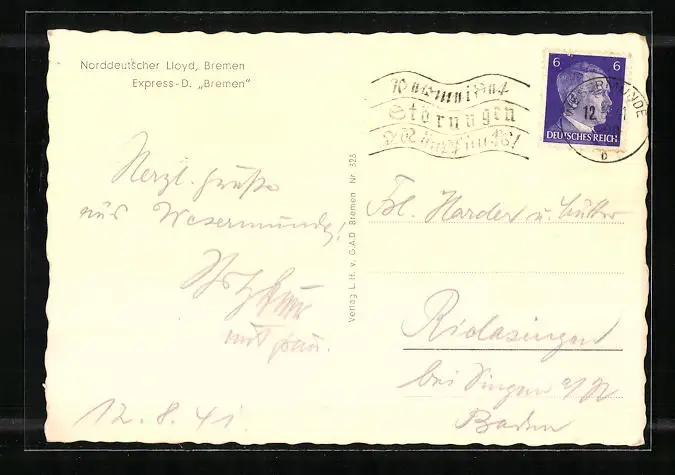 Norddeutscher Lloyd, Bremen
Express-D. „Bremen"
Herzl. Grüße
aus Wesermünde!
mit Frau.
12.8.41.
Verlag L. H. v. G.A.D Bremen Nr. 323
Vermeidet
Störungen
6 6
DEUTSCHES REICH
WESERMÜNDE
12.
b
Frl. Harder u. Mutter
Rielasingen
bei Singen a/H
Baden